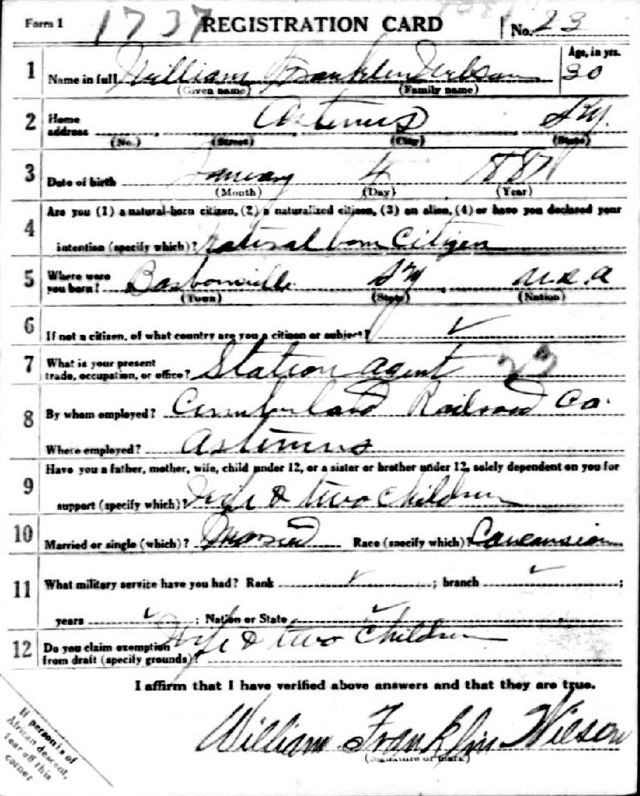 Form 1 1737 REGISTRATION CARD No. 23
1 Name in full William Franklin Wilson Age, in yrs. 30
(Given name) (Family name)
2 Home address Artemus Ky.
(No.) (Street) (City) (State)
3 Date of birth January 4 1887
(Month) (Day) (Year)
4 Are you (1) a natural-born citizen, (2) a naturalized citizen, (3) an alien, (4) or have you declared your
intention (specify which)? Natural born Citizen
5 Where were you born? Barbourville Ky U.S.A
(Town) (State) (Nation)
6 If not a citizen, of what country are you a citizen or subject? ✓
7 What is your present trade, occupation, or office? Station agent 22
8 By whom employed? Cumberland Railroad Co.
Where employed? Artemus
9 Have you a father, mother, wife, child under 12, or a sister or brother under 12, solely dependent on you for
support (specify which)? Wife & two children
10 Married or single (which)? Married Race (specify which)? Caucasian
11 What military service have you had? Rank ✓ ; branch ✓ ;
years ✓ ; Nation or State ✓
12 Do you claim exemption from draft (specify grounds)? Wife & two children
I affirm that I have verified above answers and that they are true.
William Franklin Wilson
(Signature or mark)
If person is of
African descent,
tear off this
corner